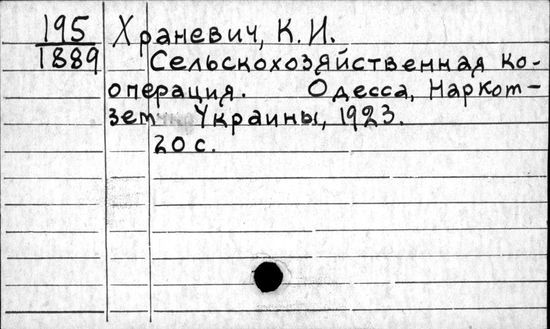 195 Храневич, К. И.
1889 Сельскохозяйственная ко-
операция. Одесса, Наркот-
зем Украины, 1923.
20 с.